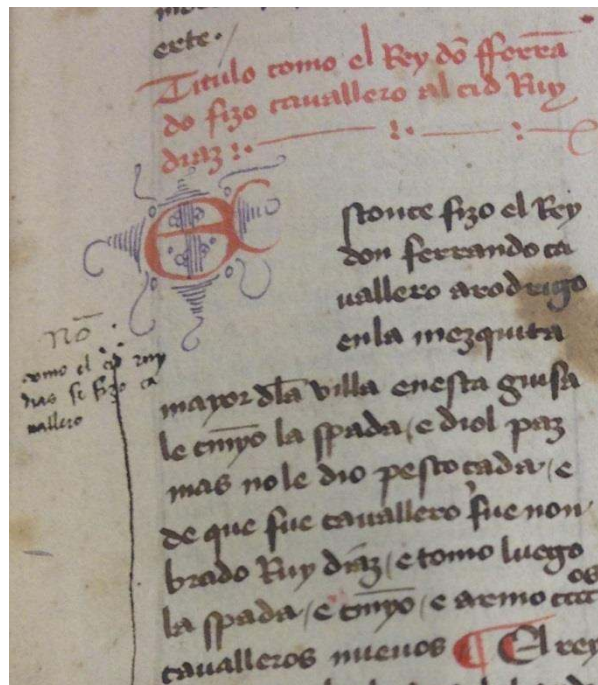 erte.
Titulo como el Rey dõ fferrã
do fizo cauallero al cid Ruy
diaz :.
Estonce fizo el Rey
don ferrando ca
uallero a rodrigo
en la mezquita
mayor dla villa en esta guisa
le cinyo la spada, e diol paz
mas no le dio pescocada, e
de que fue cauallero fue non
brado Ruy diaz, e tomo luego
la spada, e cinyo, e armo cccc os
caualleros nueuos El rey
Nõ
como el cid ruy
dias se fizo ca
uallero